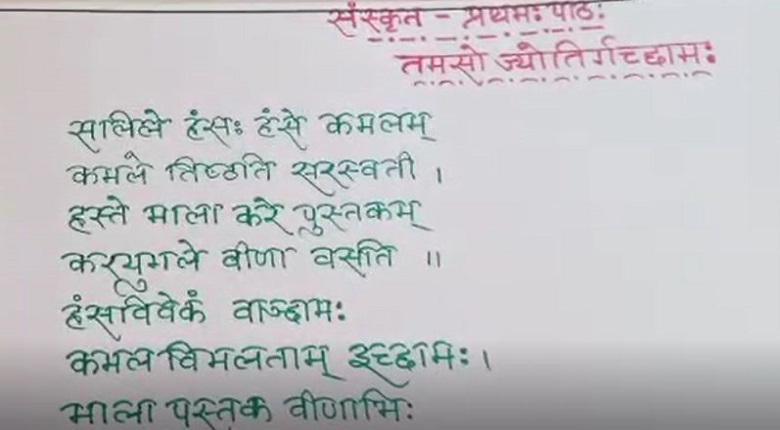 संस्कृत - प्रथमः पाठः
तमसो ज्योतिर्गच्छामः
सलिले हंसः हंसे कमलम्
कमले तिष्ठति सरस्वती ।
हस्ते माला करे पुस्तकम्
करयुगले वीणा वसति ॥
हंसविवेकं वाञ्छामः
कमल विमलताम् इच्छामः ।
माला पुस्तक वीणाभिः